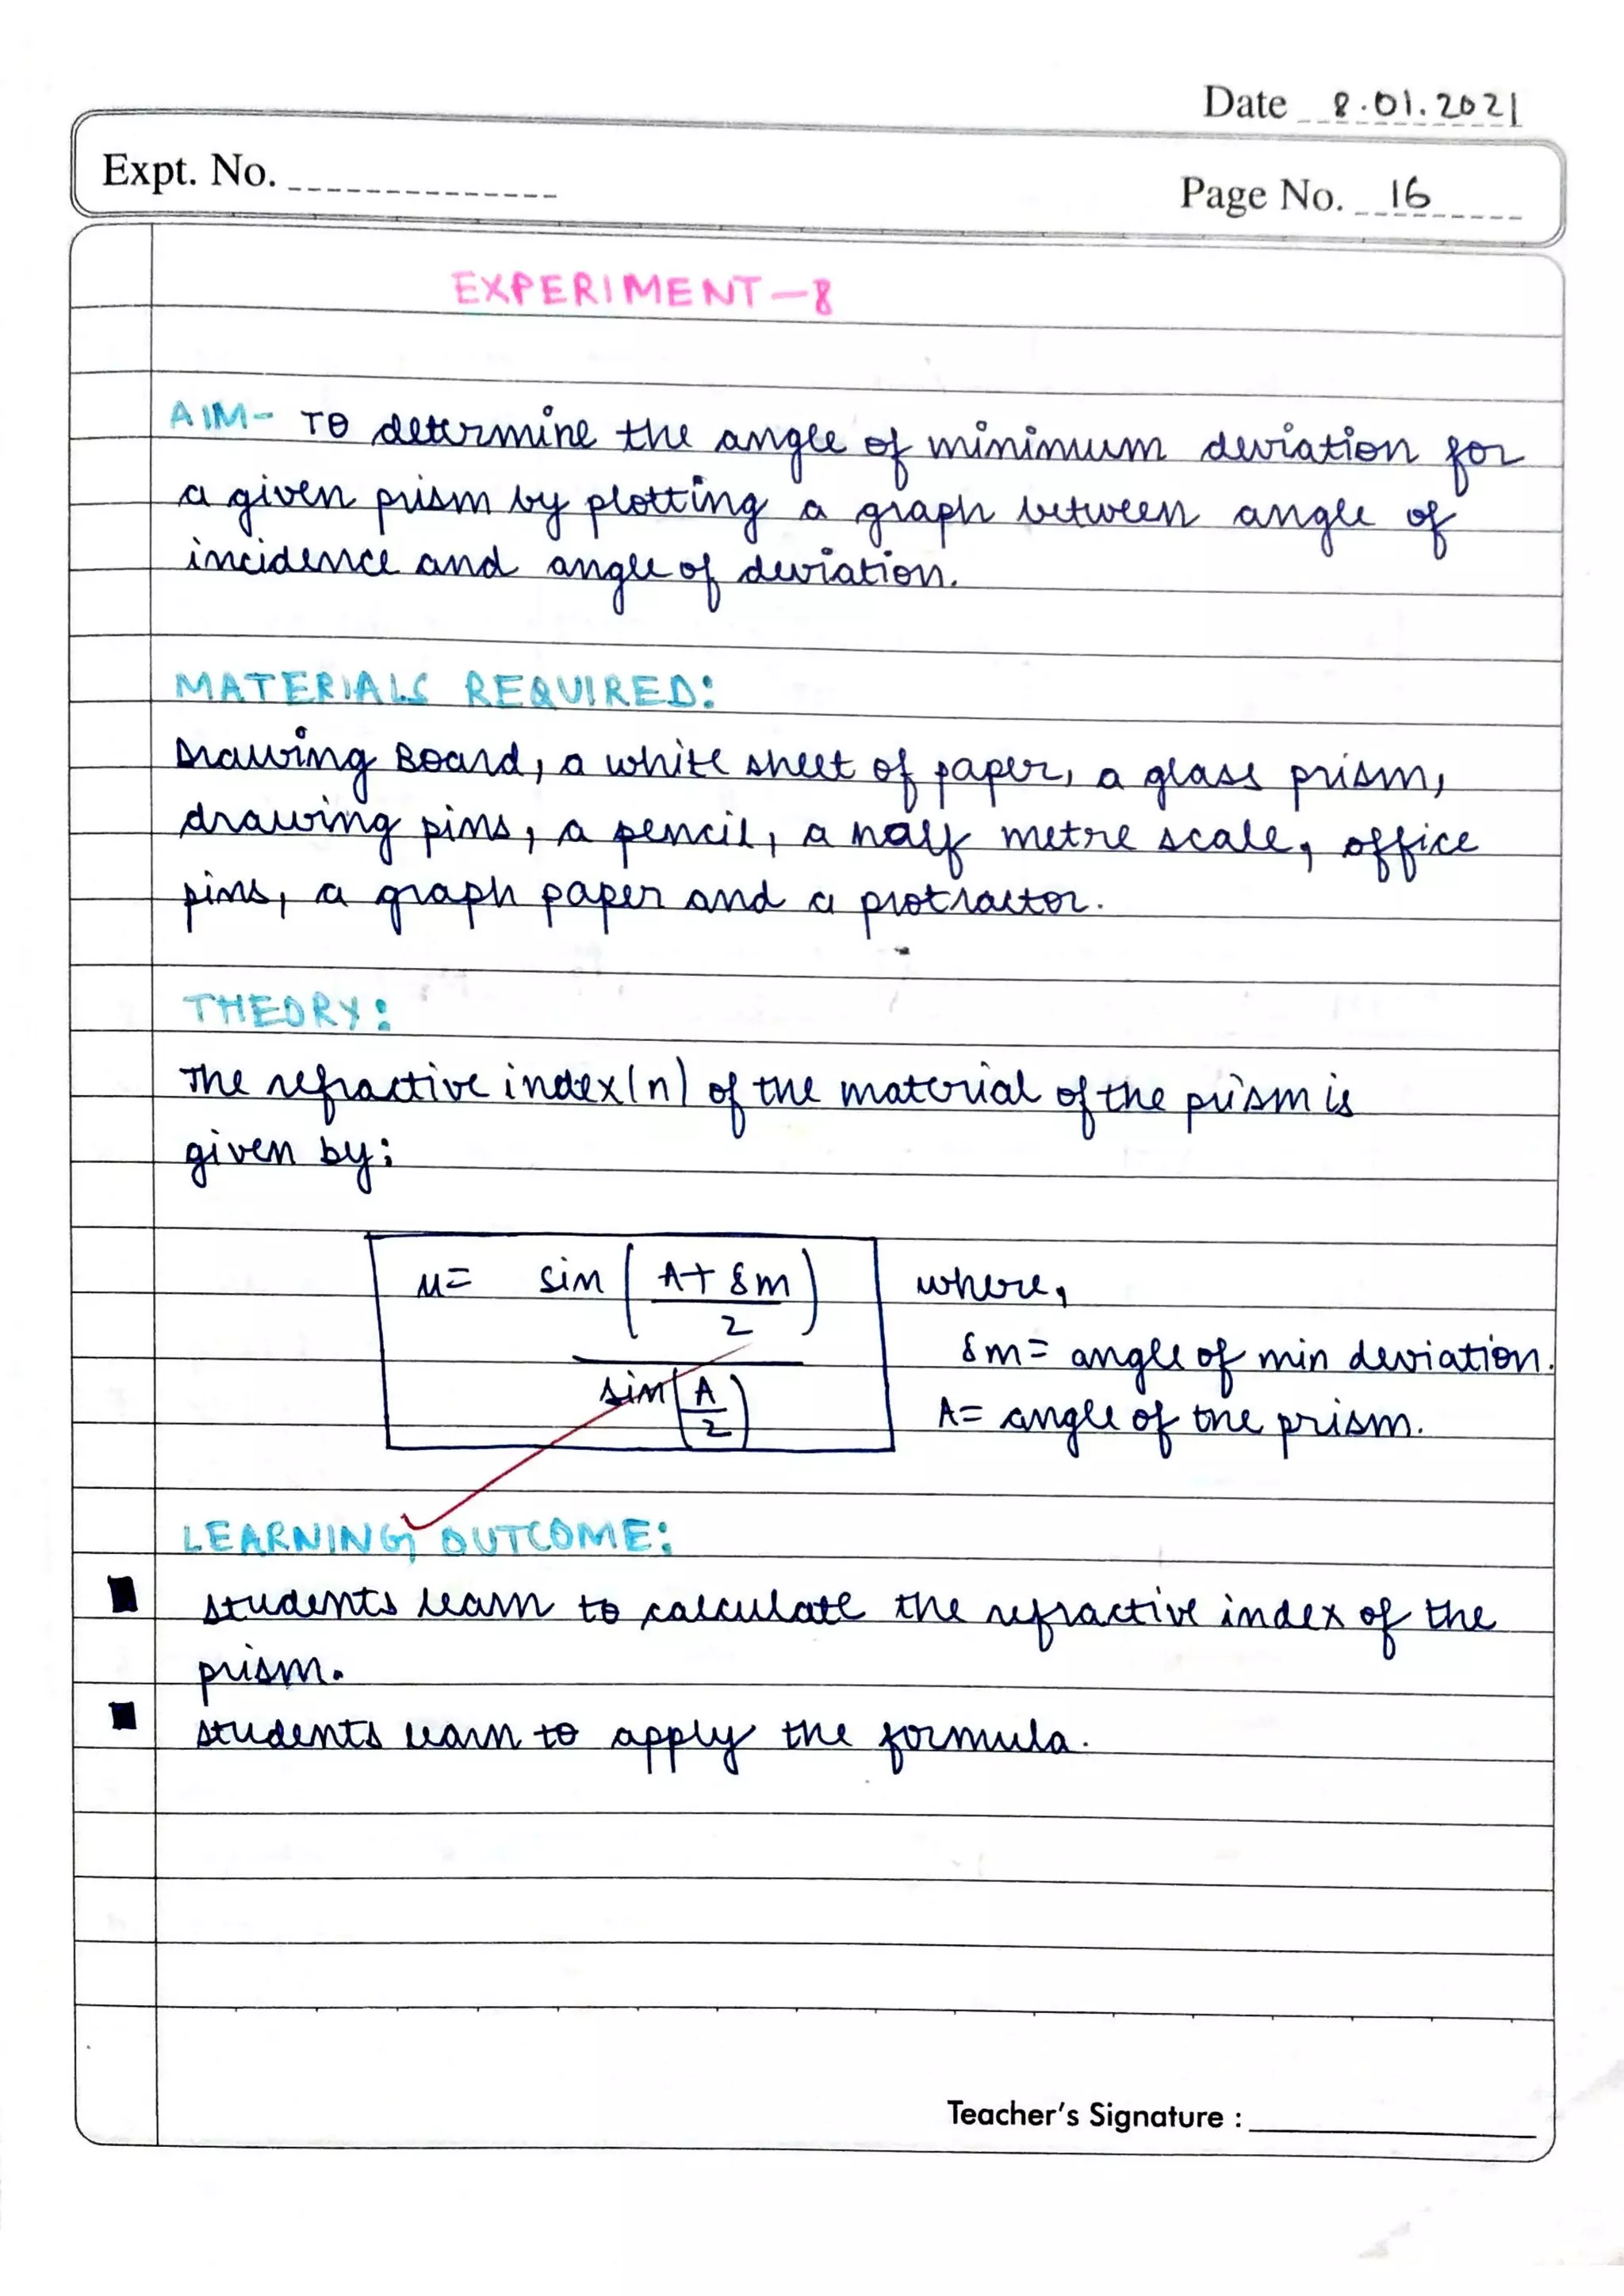 Date 8.01.2021
Expt. No.
Page No. 16
EXPERIMENT-8
AIM- To determine the angle of minimum deviation for
a given prism by plotting a graph between angle of
incidence and angle of deviation.
MATERIALS REQUIRED:
Drawing Board, a white sheet of paper, a glass prism,
drawing pins, a pencil, a half metre scale, office
pins, a graph paper and a protractor.
THEORY:
The refractive index(n) of the material of the prism is
given by:
μ= sin (A+δm/2) / sin(A/2) where,
δm= angle of min deviation.
A= angle of the prism.
LEARNING OUTCOME:
students learn to calculate the refractive index of the
prism.
students learn to apply the formula.
Teacher's Signature :